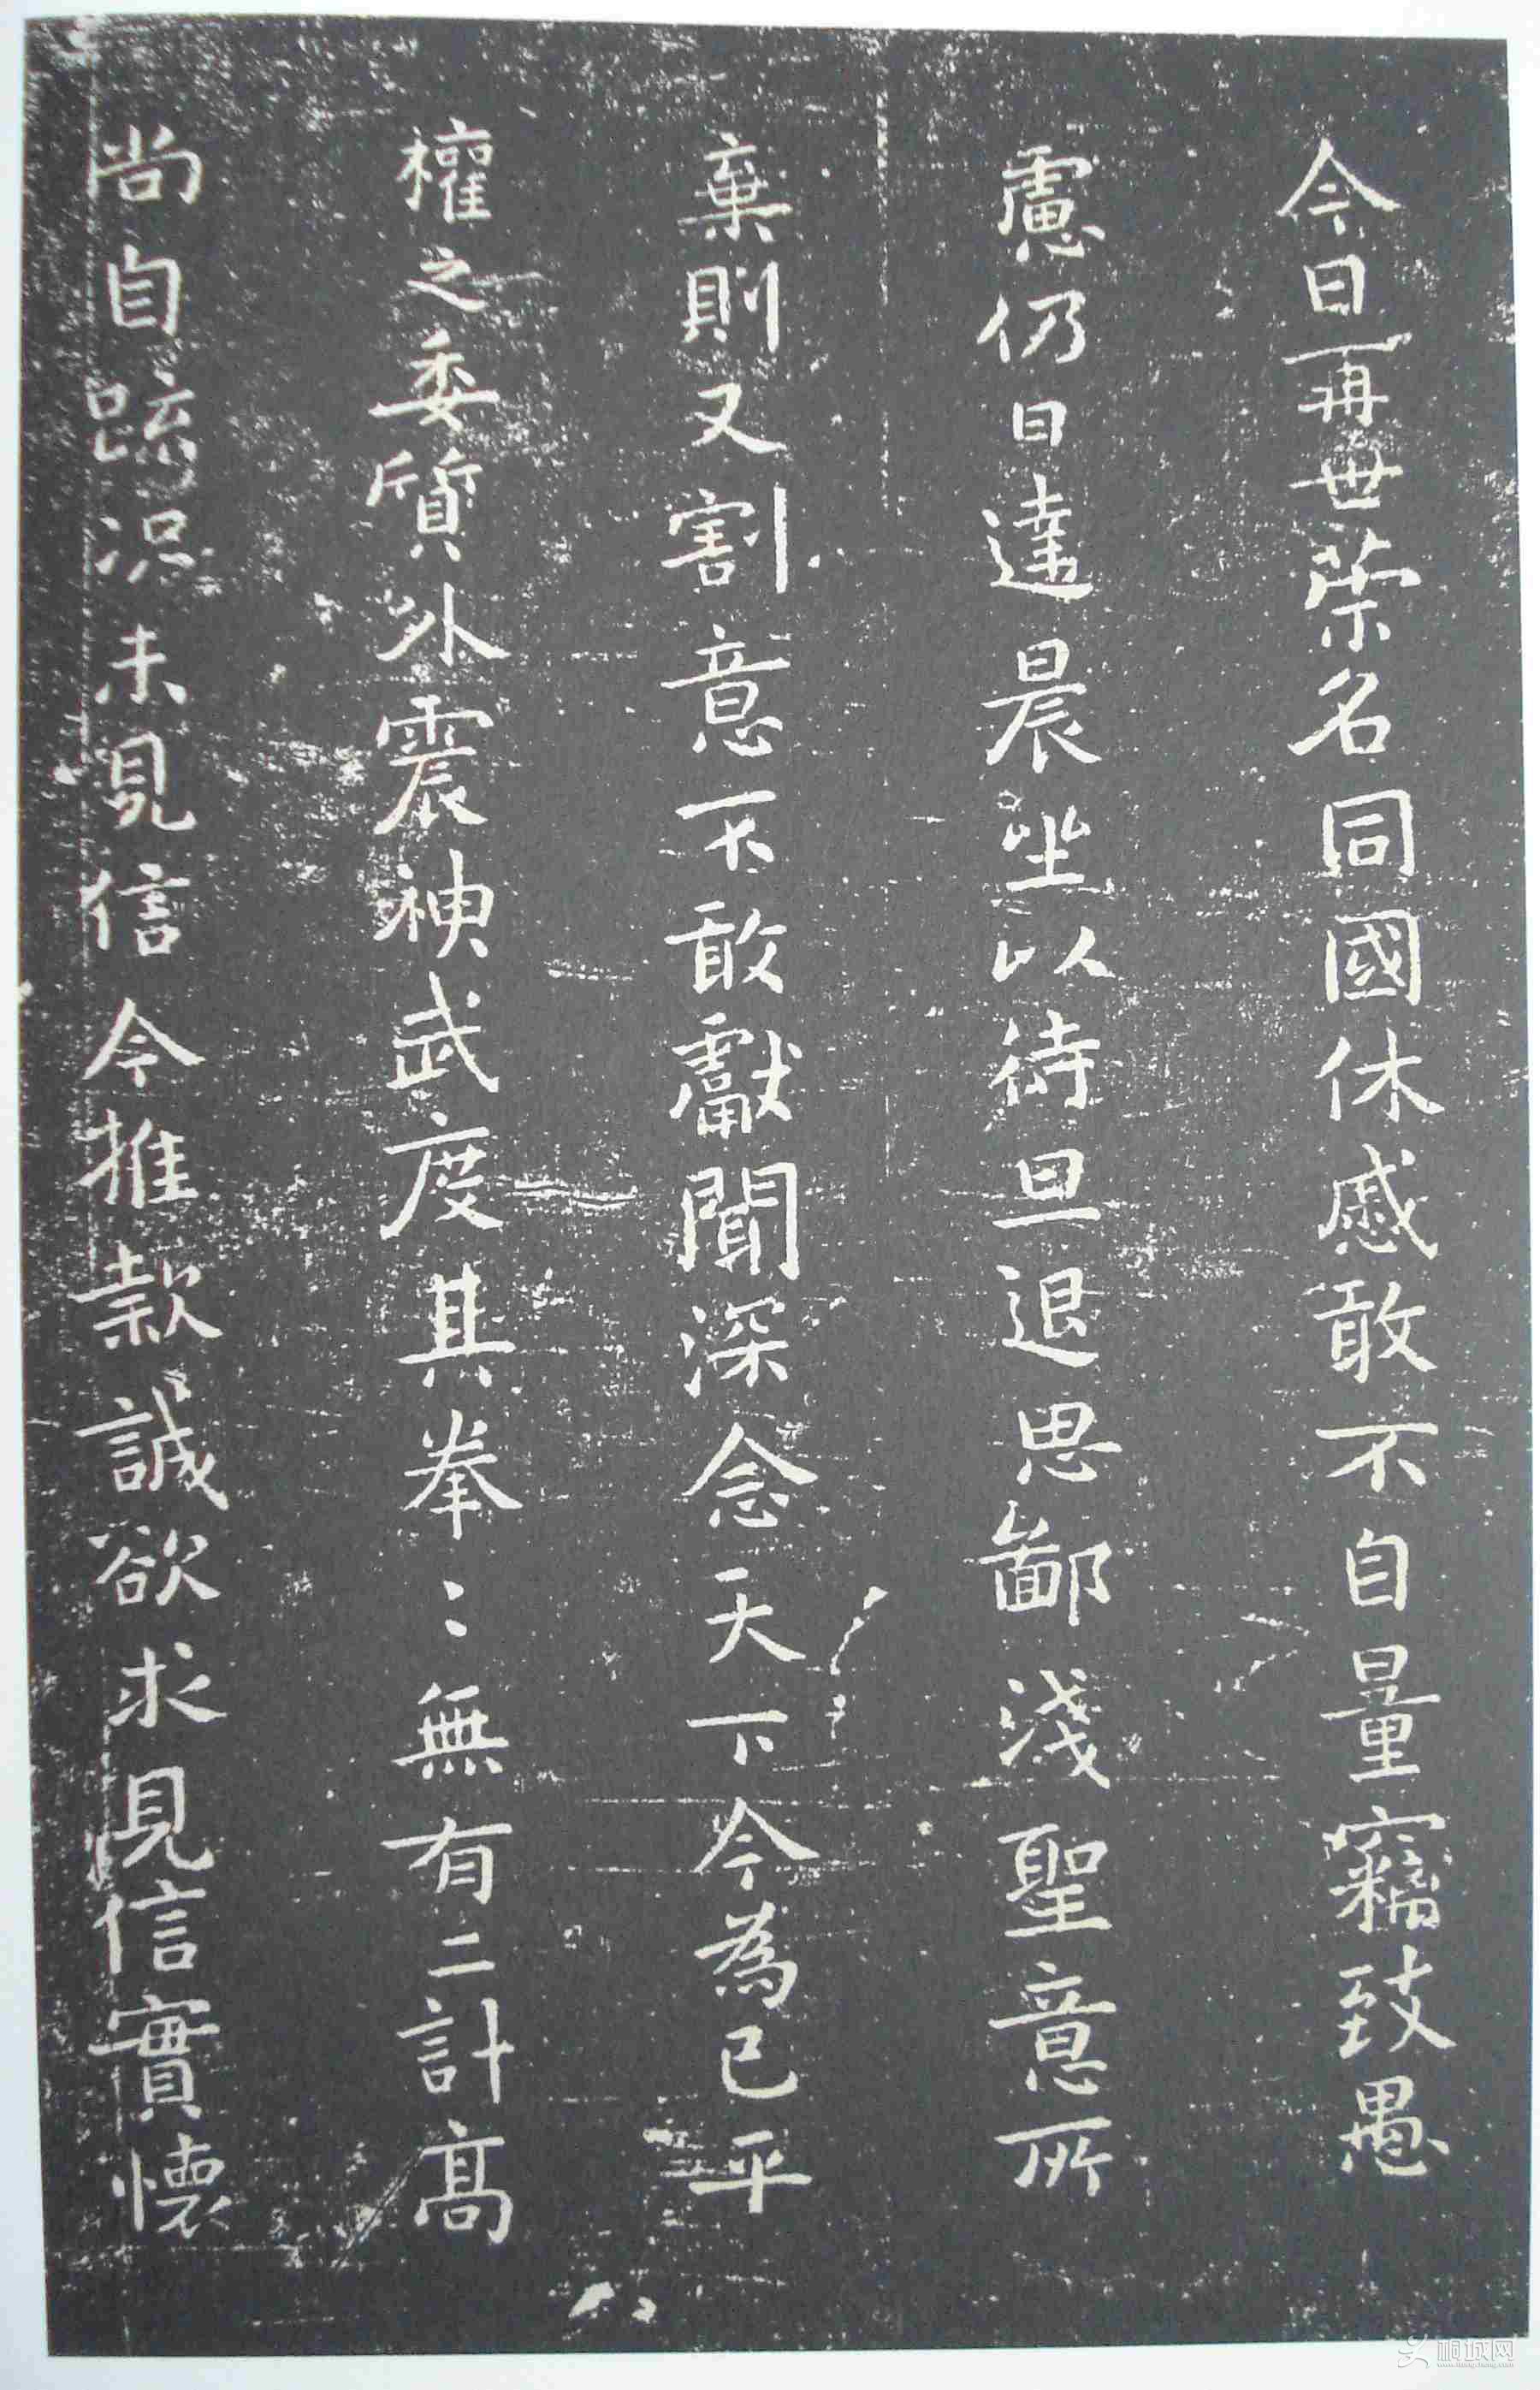 今日再世榮名同國休慼敢不自量竊致愚
慮仍日達晨坐以待旦退思鄙淺聖意所
棄則又割意不敢獻聞深念天下今為已平
權之委質外震神武度其拳〻無有二計高
尚自疏況未見信今推款誠欲求見信實懷
桐城网